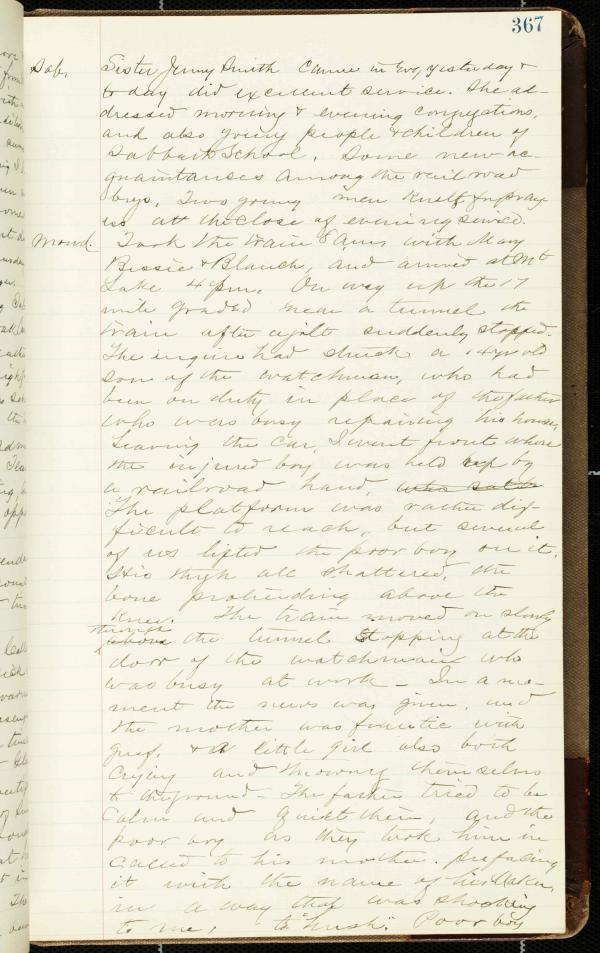 367
Sab. Sister Jenny Smith Came in Eve, yesterday &
to day did excellent service. She ad-
dressed morning & evening congregations,
and also young people & children of
Sabbath School, Some new ac-
quaintances among the railroad
boys, Two young men knelt for pray
ers at the Close of evening service.
Mond. Took the train 8 am with Mary
Bessie & Blanch, and arrived at Mt
Lake 4 pm. On way up the 17
mile graded near a tunnel the
train after a jolt suddenly stopped.
The engine had struck a 14 yr old
son of the watchman, who had
been on duty in place of the father
who was busy repairing his house,
Leaving the Car, I went front where
the injured boy was held up by
a railroad hand, who sat
The platform was rather dif-
ficult to reach, but several
of us lifted the poor boy on it.
His thigh all shattered, the
bone protruding above the
knee. The train moved on slowly
through
above the tunnel Stopping at the
door of the watchman who
was busy at work – In a mo-
ment the news was given, and
the mother was frantic with
grief, & a little girl also both
Crying and throwing themselves
to the ground – The father tried to be
Calm and quiet them, and the
poor boy as they took him in
Called to his mother. prefacing
it with the name of his Maker,
in a way that was shocking
to me, to "hush". Poor boy